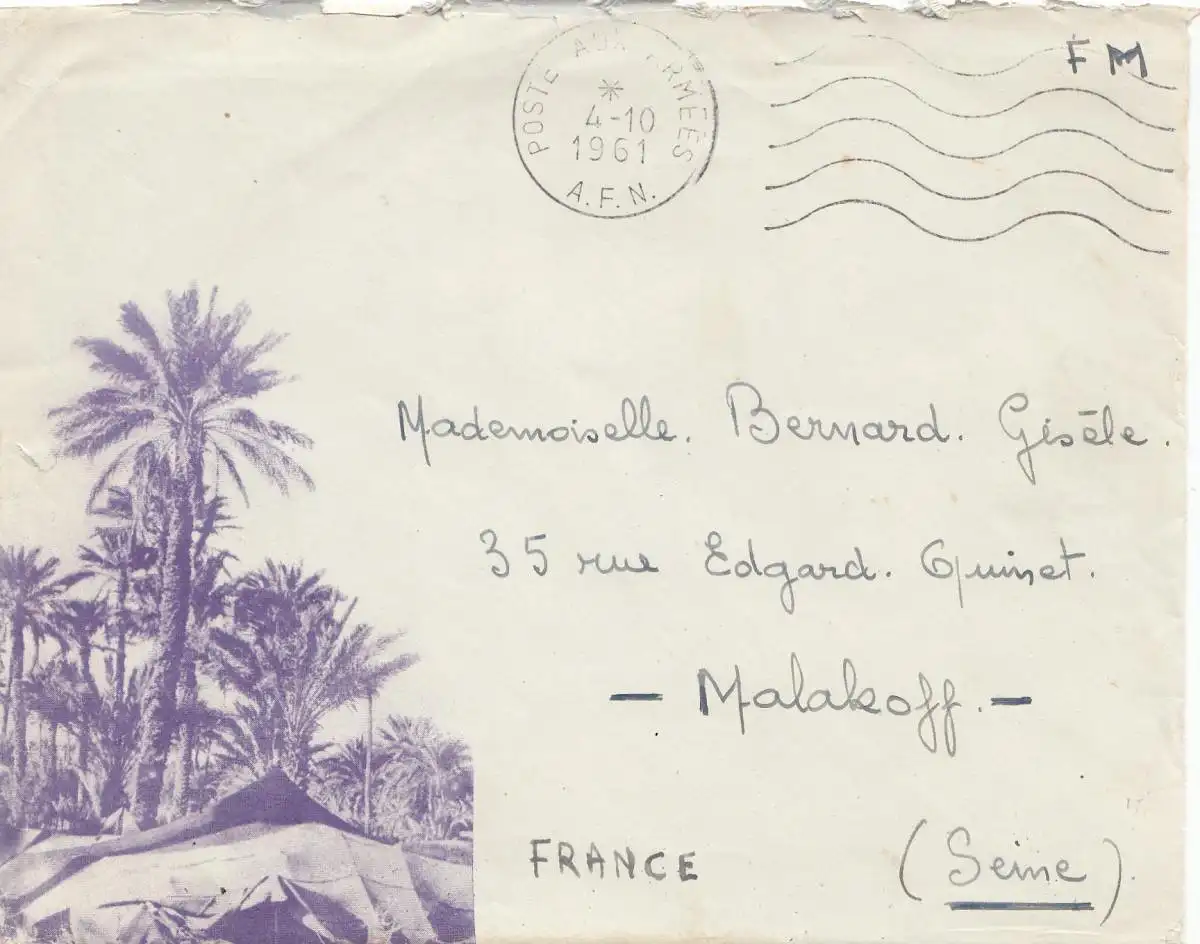 POSTE AUX ARMEES
*
4-10
1961
A.F.N.
F M
Mademoiselle. Bernard. Gisèle.
35 rue Edgard. Quinet.
- Malakoff. -
FRANCE
(Seine).